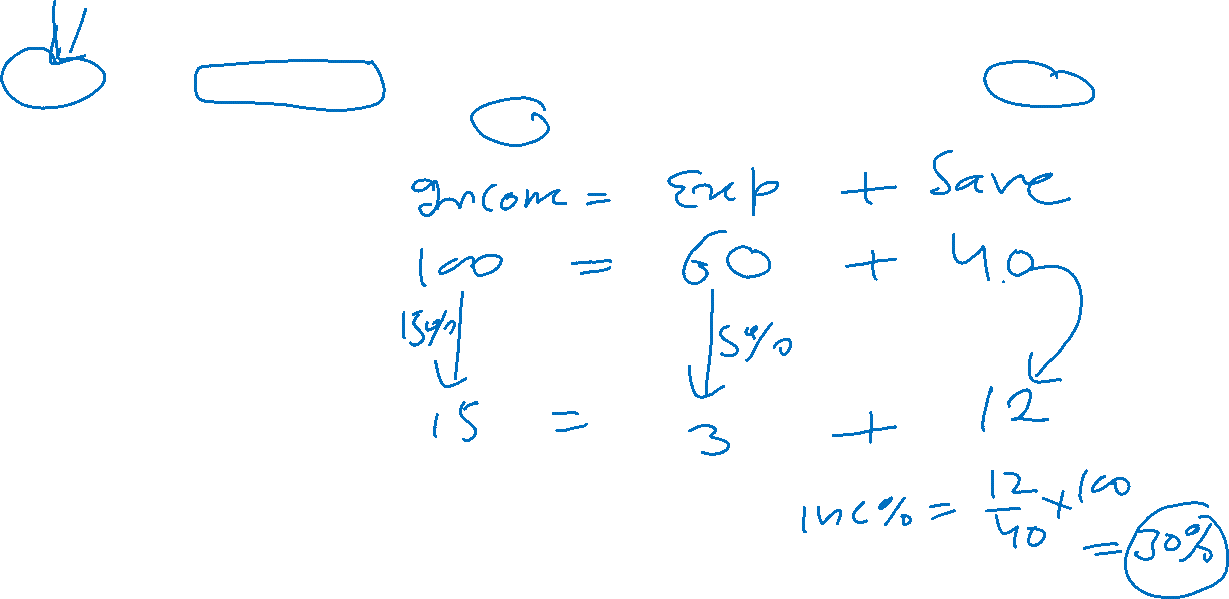 Income = Exp + Save
100 = 60 + 40
15% 5%
15 = 3 + 12
inc% = 12/40 × 100
= 30%